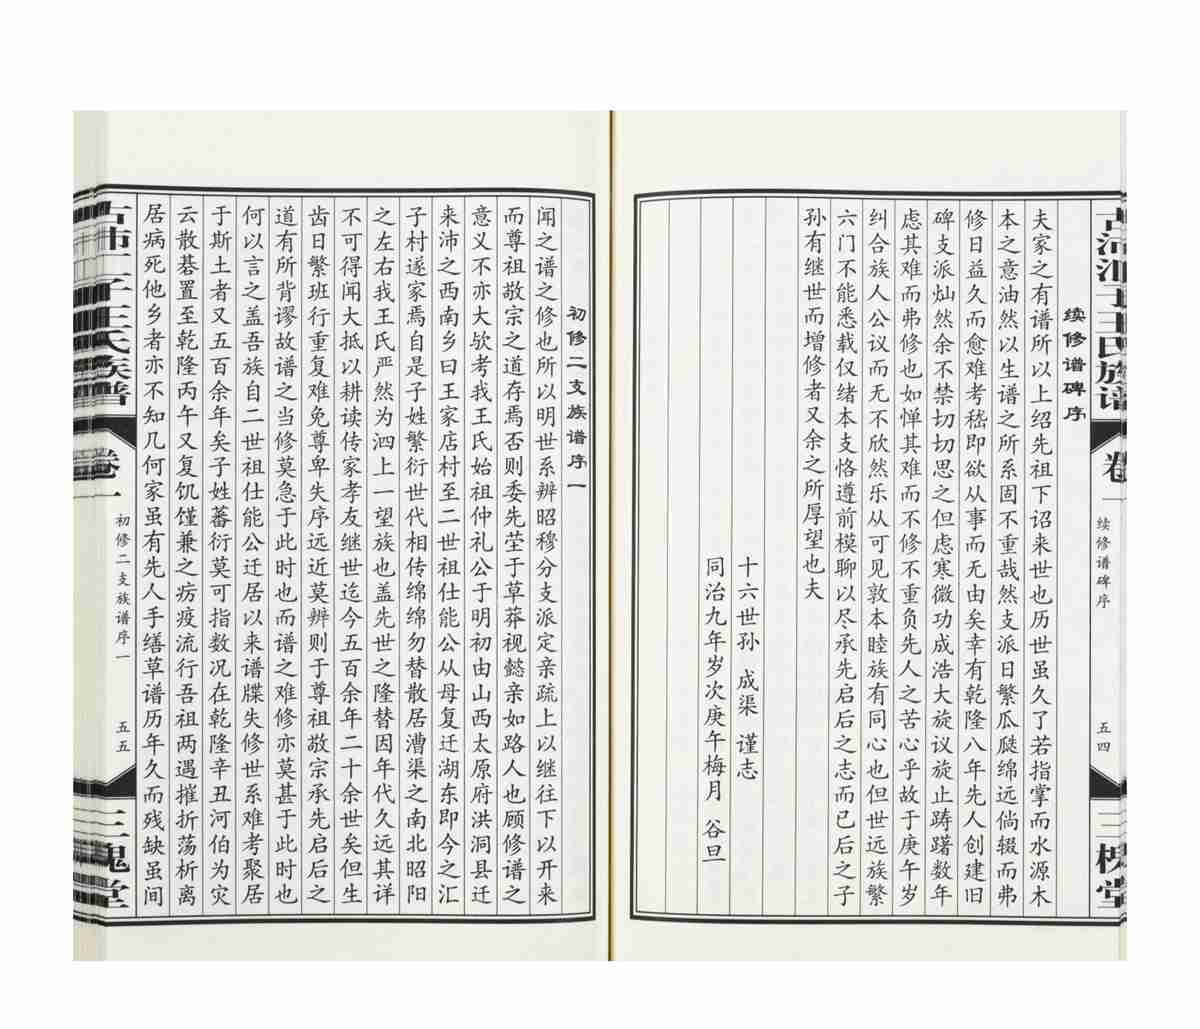 续修谱碑序
夫家之有谱所以上绍先祖下诏来世也历世虽久了若指掌而水源木
本之意油然以生谱之所系固不重哉然支派日繁瓜瓞绵远倘辍而弗
修日益久而愈难考嵇即欲从事而无由矣幸有乾隆八年先人创建旧
碑支派灿然余不禁切切思之但虑寒微功成浩大旋议旋止踌躇数年
虑其难而弗修也如惮其难而不修不重负先人之苦心乎故于庚午岁
纠合族人公议而无不欣然乐从可见敦本睦族有同心也但世远族繁
六门不能悉载仅绪本支恪遵前模聊以尽承先启后之志而已后之子
孙有继世而增修者又余之所厚望也夫
十六世孙 成渠 谨志
同治九年岁次庚午梅月 谷旦
王氏族谱
卷一
续修谱碑序
五四
三槐堂
初修二支族谱序一
闻之谱之修也所以明世系辨昭穆分支派定亲疏上以继往下以开来
而尊祖敬宗之道存焉否则委先茔于草莽视懿亲如路人也顾修谱之
意义不亦大欤考我王氏始祖仲礼公于明初由山西太原府洪洞县迁
来沛之西南乡曰王家店村至二世祖仕能公从母复迁湖东即今之汇
子村遂家焉自是子姓繁衍世代相传绵绵勿替散居漕渠之南北昭阳
之左右我王氏严然为泗上一望族也盖先世之隆替因年代久远其详
不可得闻大抵以耕读传家孝友继世迄今五百余年二十余世矣但生
齿日繁班行重复难免尊卑失序远近莫辨则于尊祖敬宗承先启后之
道有所背谬故谱之当修莫急于此时也而谱之难修亦莫甚于此时也
何以言之盖吾族自二世祖仕能公迁居以来谱牒失修世系难考聚居
于斯土者又五百余年矣子姓蕃衍莫可指数况在乾隆辛丑河伯为灾
云散碁置至乾隆丙午又复饥馑兼之疠疫流行吾祖两遇摧折荡析离
居病死他乡者亦不知几何家虽有先人手缮草谱历年久而残缺虽间
王氏族谱
卷一
初修二支族谱序一
五五
三槐堂